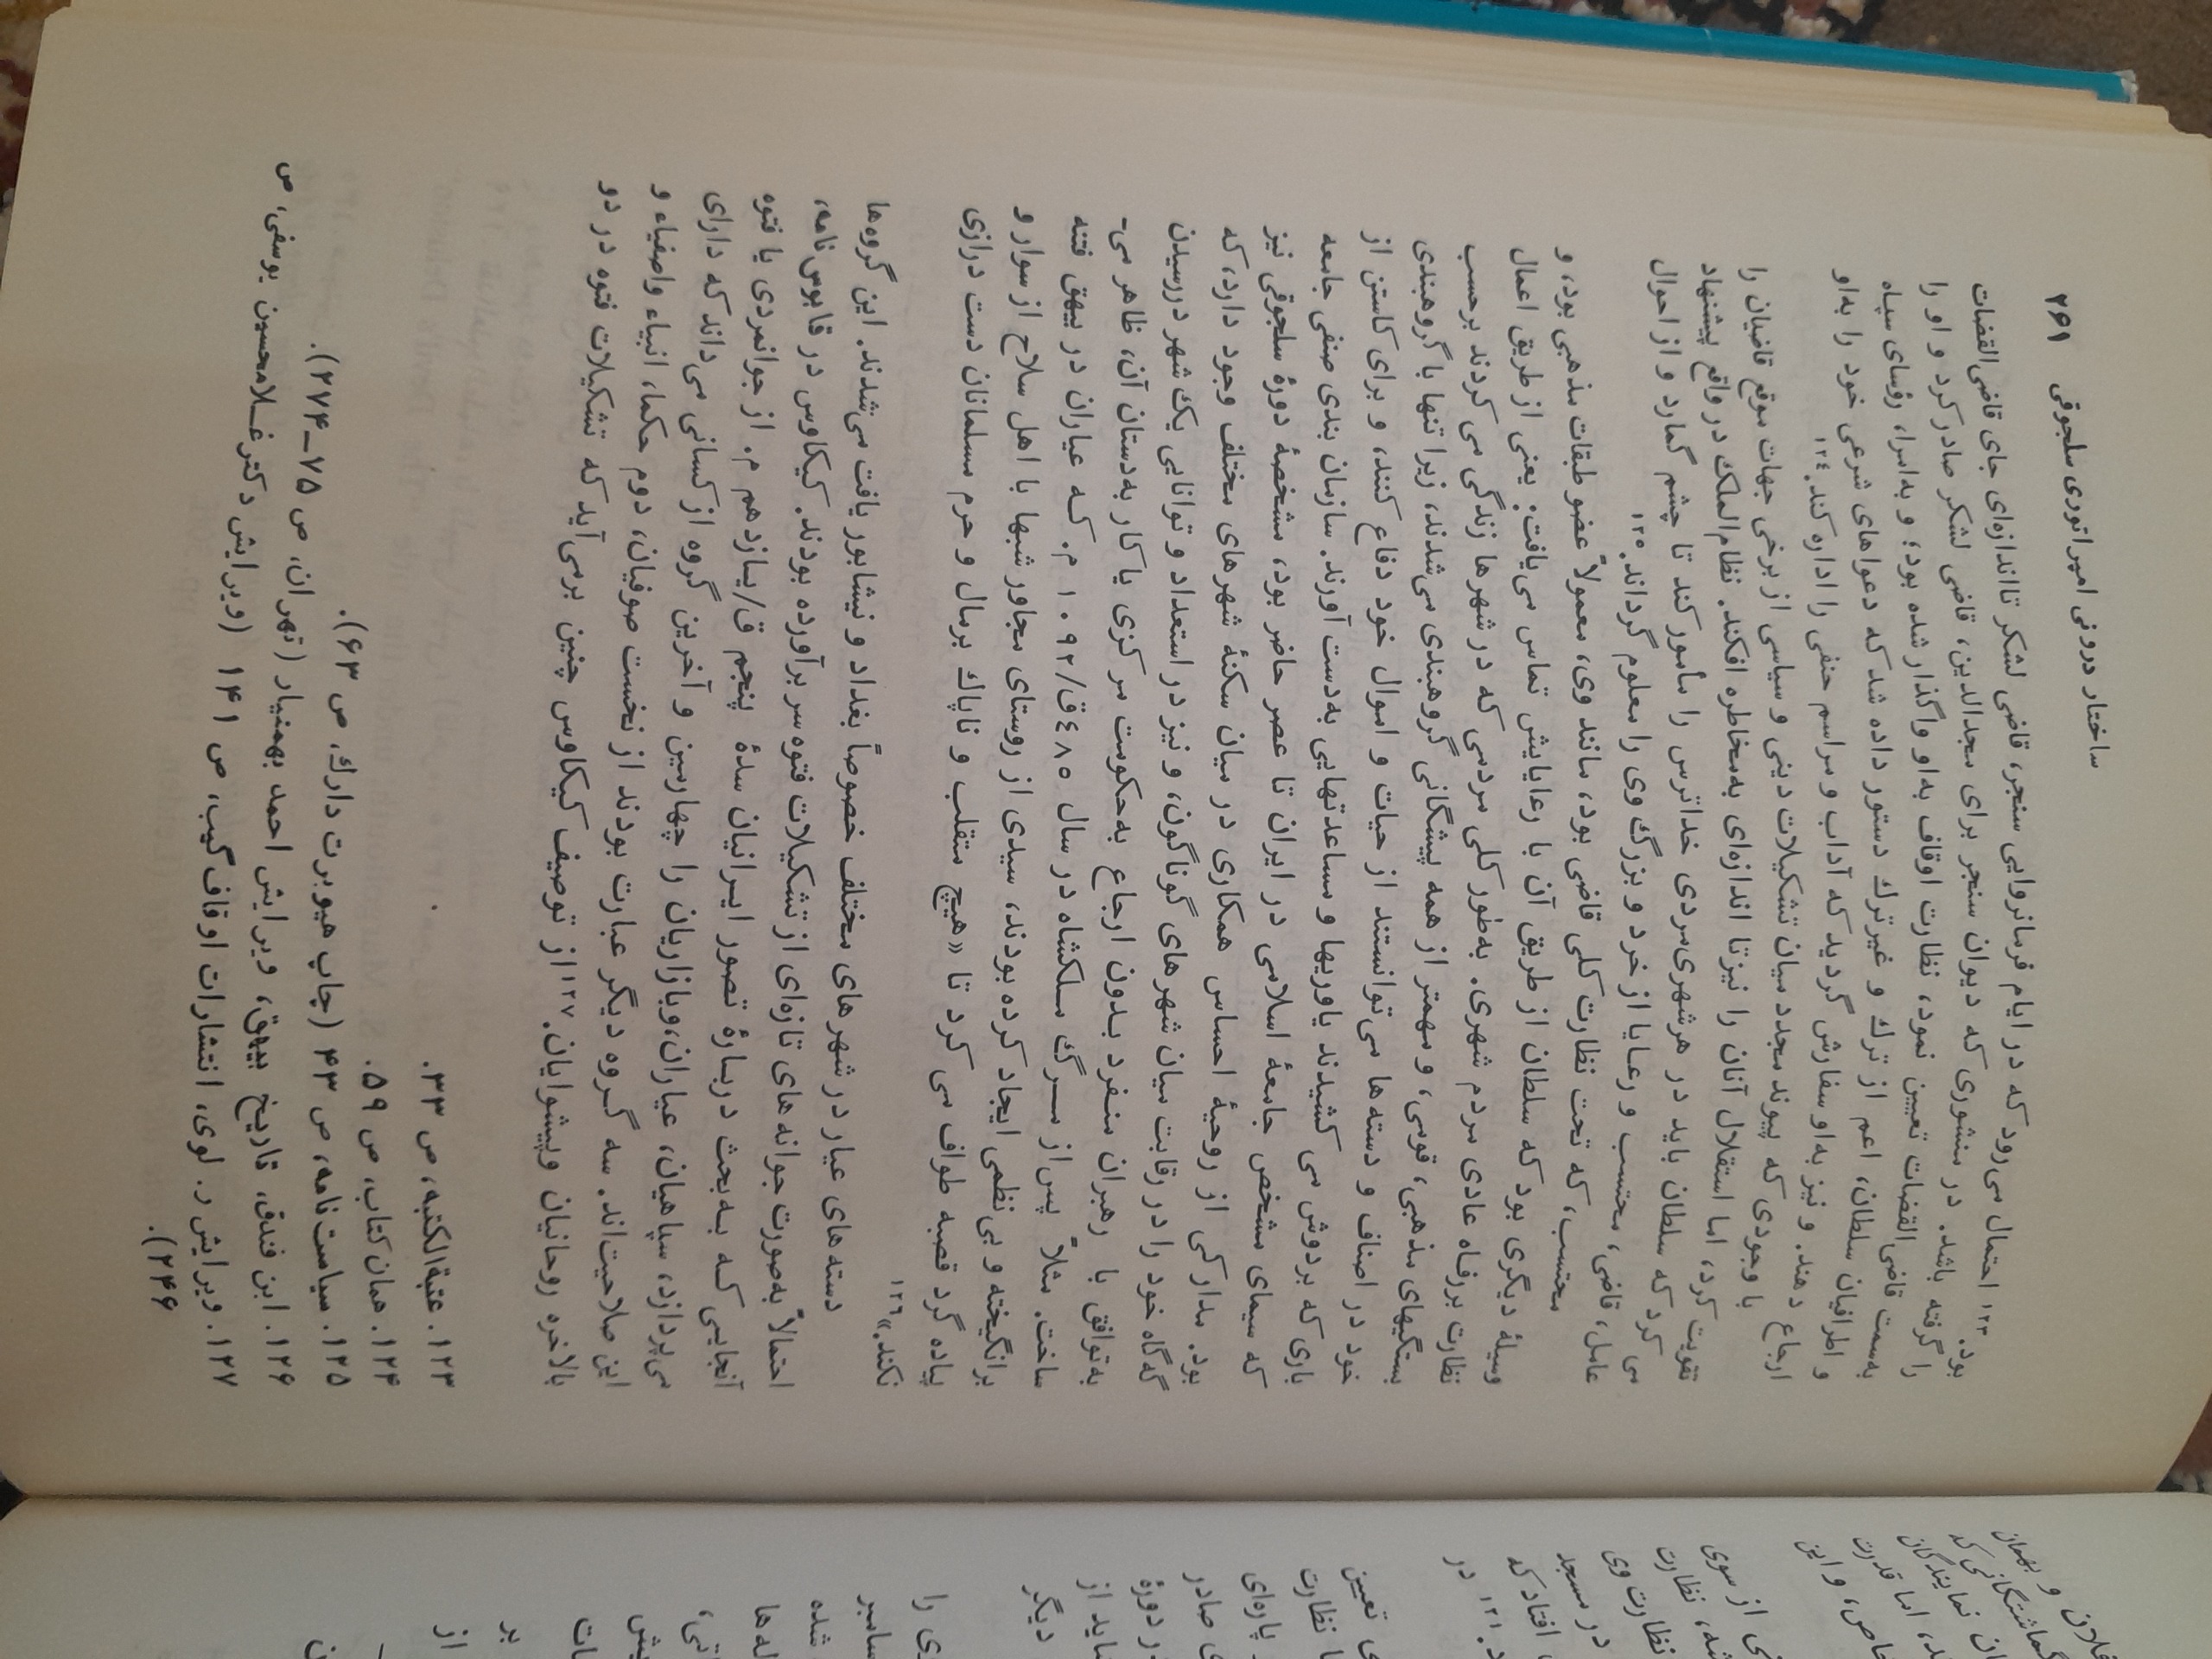 ساختار درونی امپراتوری سلجوقی ۲۶۱
بود.۱۲۳ احتمال می‌رود که در ایام فرمانروایی سنجر، قاضی لشکر تااندازه‌ای جای قاضی‌القضات
را گرفته باشد. در منشوری که دیوان سنجر برای مجدالدین، قاضی لشکر صادرکرد و او را
به‌سمت قاضی‌القضات تعیین نمود، نظارت اوقاف به‌او واگذار شده بود؛ و به‌امرا، رؤسای سپاه
و اطرافیان سلطان، اعم از ترك و غیرترك دستور داده شد که دعواهای شرعی خود را به‌او
ارجاع دهند. و نیز به‌او سفارش گردید که آداب و مراسم حنفی را اداره کند.۱۲٤
با وجودی که پیوند مجدد میان تشکیلات دینی و سیاسی از برخی جهات موقع قاضیان را
تقویت کرد، اما استقلال آنان را نیزتا اندازه‌ای به‌مخاطره افکند. نظام‌الملك در واقع پیشنهاد
می کرد که سلطان باید در هرشهری‌مردی خداترس را مأمور کند تا چشم گمارد و از احوال
عامل، قاضی، محتسب و رعـایا از خرد و بزرگ وی را معلوم گرداند.۱۲۵
محتسب، که تحت نظارت کلی قاضی بود، مانند وی، معمولاً عضو طبقات مذهبی بود، و
وسیلهٔ دیگری بود که سلطان از طریق آن با رعایایش تماس می‌یافت: یعنی از طریق اعمال
نظارت بررفـاه عادی مردم شهری. به‌طورکلی مردمی که در شهرها زندگی می کردند برحسب
بستگیهای مذهبی، قومی، و مهمتر از همه پیشگانی گروهبندی می‌شدند، زیرا تنها با گروهبندی
خود در اصناف و دسته‌ها می‌توانستند از حیات و اموال خود دفاع کنند، و برای کاستن از
باری که بردوش می کشیدند یاوریها و مساعدتهایی به‌دست آورند. سازمان بندی صنفی جامعه
که سیمای مشخص جامعهٔ اسلامی در ایران تا عصر حاضر بود، مشخصهٔ دورهٔ سلجوقی نیز
بود. مدارکی از روحیهٔ احساس همکاری در میان سکنهٔ شهرهای مختلف وجود دارد، که
گه‌گاه خود را در رقابت میان شهرهای گوناگون، و نیز در استعداد و توانایی یك شهر دررسیدن
به‌توافق با رهبران منفرد بـدون ارجاع به‌حکومت مرکزی یا کار به‌دستان آن، ظاهر می-
ساخت. مثلاً پس‌از مـرگ مـلکشاه در سال ٤٨۵ق/۱۰۹۲م. کـه عیاران در بیهق فتنه
برانگیخته و بی‌نظمی ایجاد کرده بودند، سیدی از روستای مجاور شبها با اهل سلاح از سوار و
پیاده گرد قصبه طواف می کرد تا «هیچ متقلب و ناپاك برمال و حرم مسلمانان دست درازی
نکند.»۱۲٦
دسته‌های عیار در شهرهای مختلف خصوصاً بغداد و نیشابور یافت می‌شدند. این گروه‌ها
احتمالاً به‌صورت جوانه‌های تازه‌ای از تشکیلات فتوه سر برآورده بودند. کیکاوس در قابوس‌نامه،
آنجایی کـه بـه‌بحث دربـارهٔ تصور ایـرانیان سدهٔ پنجم ق/یـازدهم م. از جوانمردی یا فتوه
می‌پردازد، سپاهیان، عیاران،وبازاریان را چهارمین و آخرین گروه از کسانی می‌داند که دارای
این صلاحیت‌اند. سه گـروه دیگر عبارت بودند از نخست صوفیان، دوم حکما، انبیاء واصفیاء و
بالاخره روحانیان وپیشوایان.۱۲۷از توصیف کیکاوس چنین برمی‌آید که تشکیلات فتوه در دو
۱۲۳. عتبةالکتبه، ص ۳۳.
۱۲۴. همان‌کتاب، ص ۵۹.
۱۲۵. سیاست‌نامه، ص ۴۳ (چاپ هیوبرت دارك، ص ۶۳).
۱۲۶. ابن فندق، تاریخ بیهق، ویرایش احمد بهمنیار (تهران، ص ۷۵–۲۷۴).
۱۲۷. ویرایش ر. لوی، انتشارات اوقاف گیب، ص ۱۴۱ (ویرایش دکترغـلامحسین یوسفی، ص
۲۴۶).